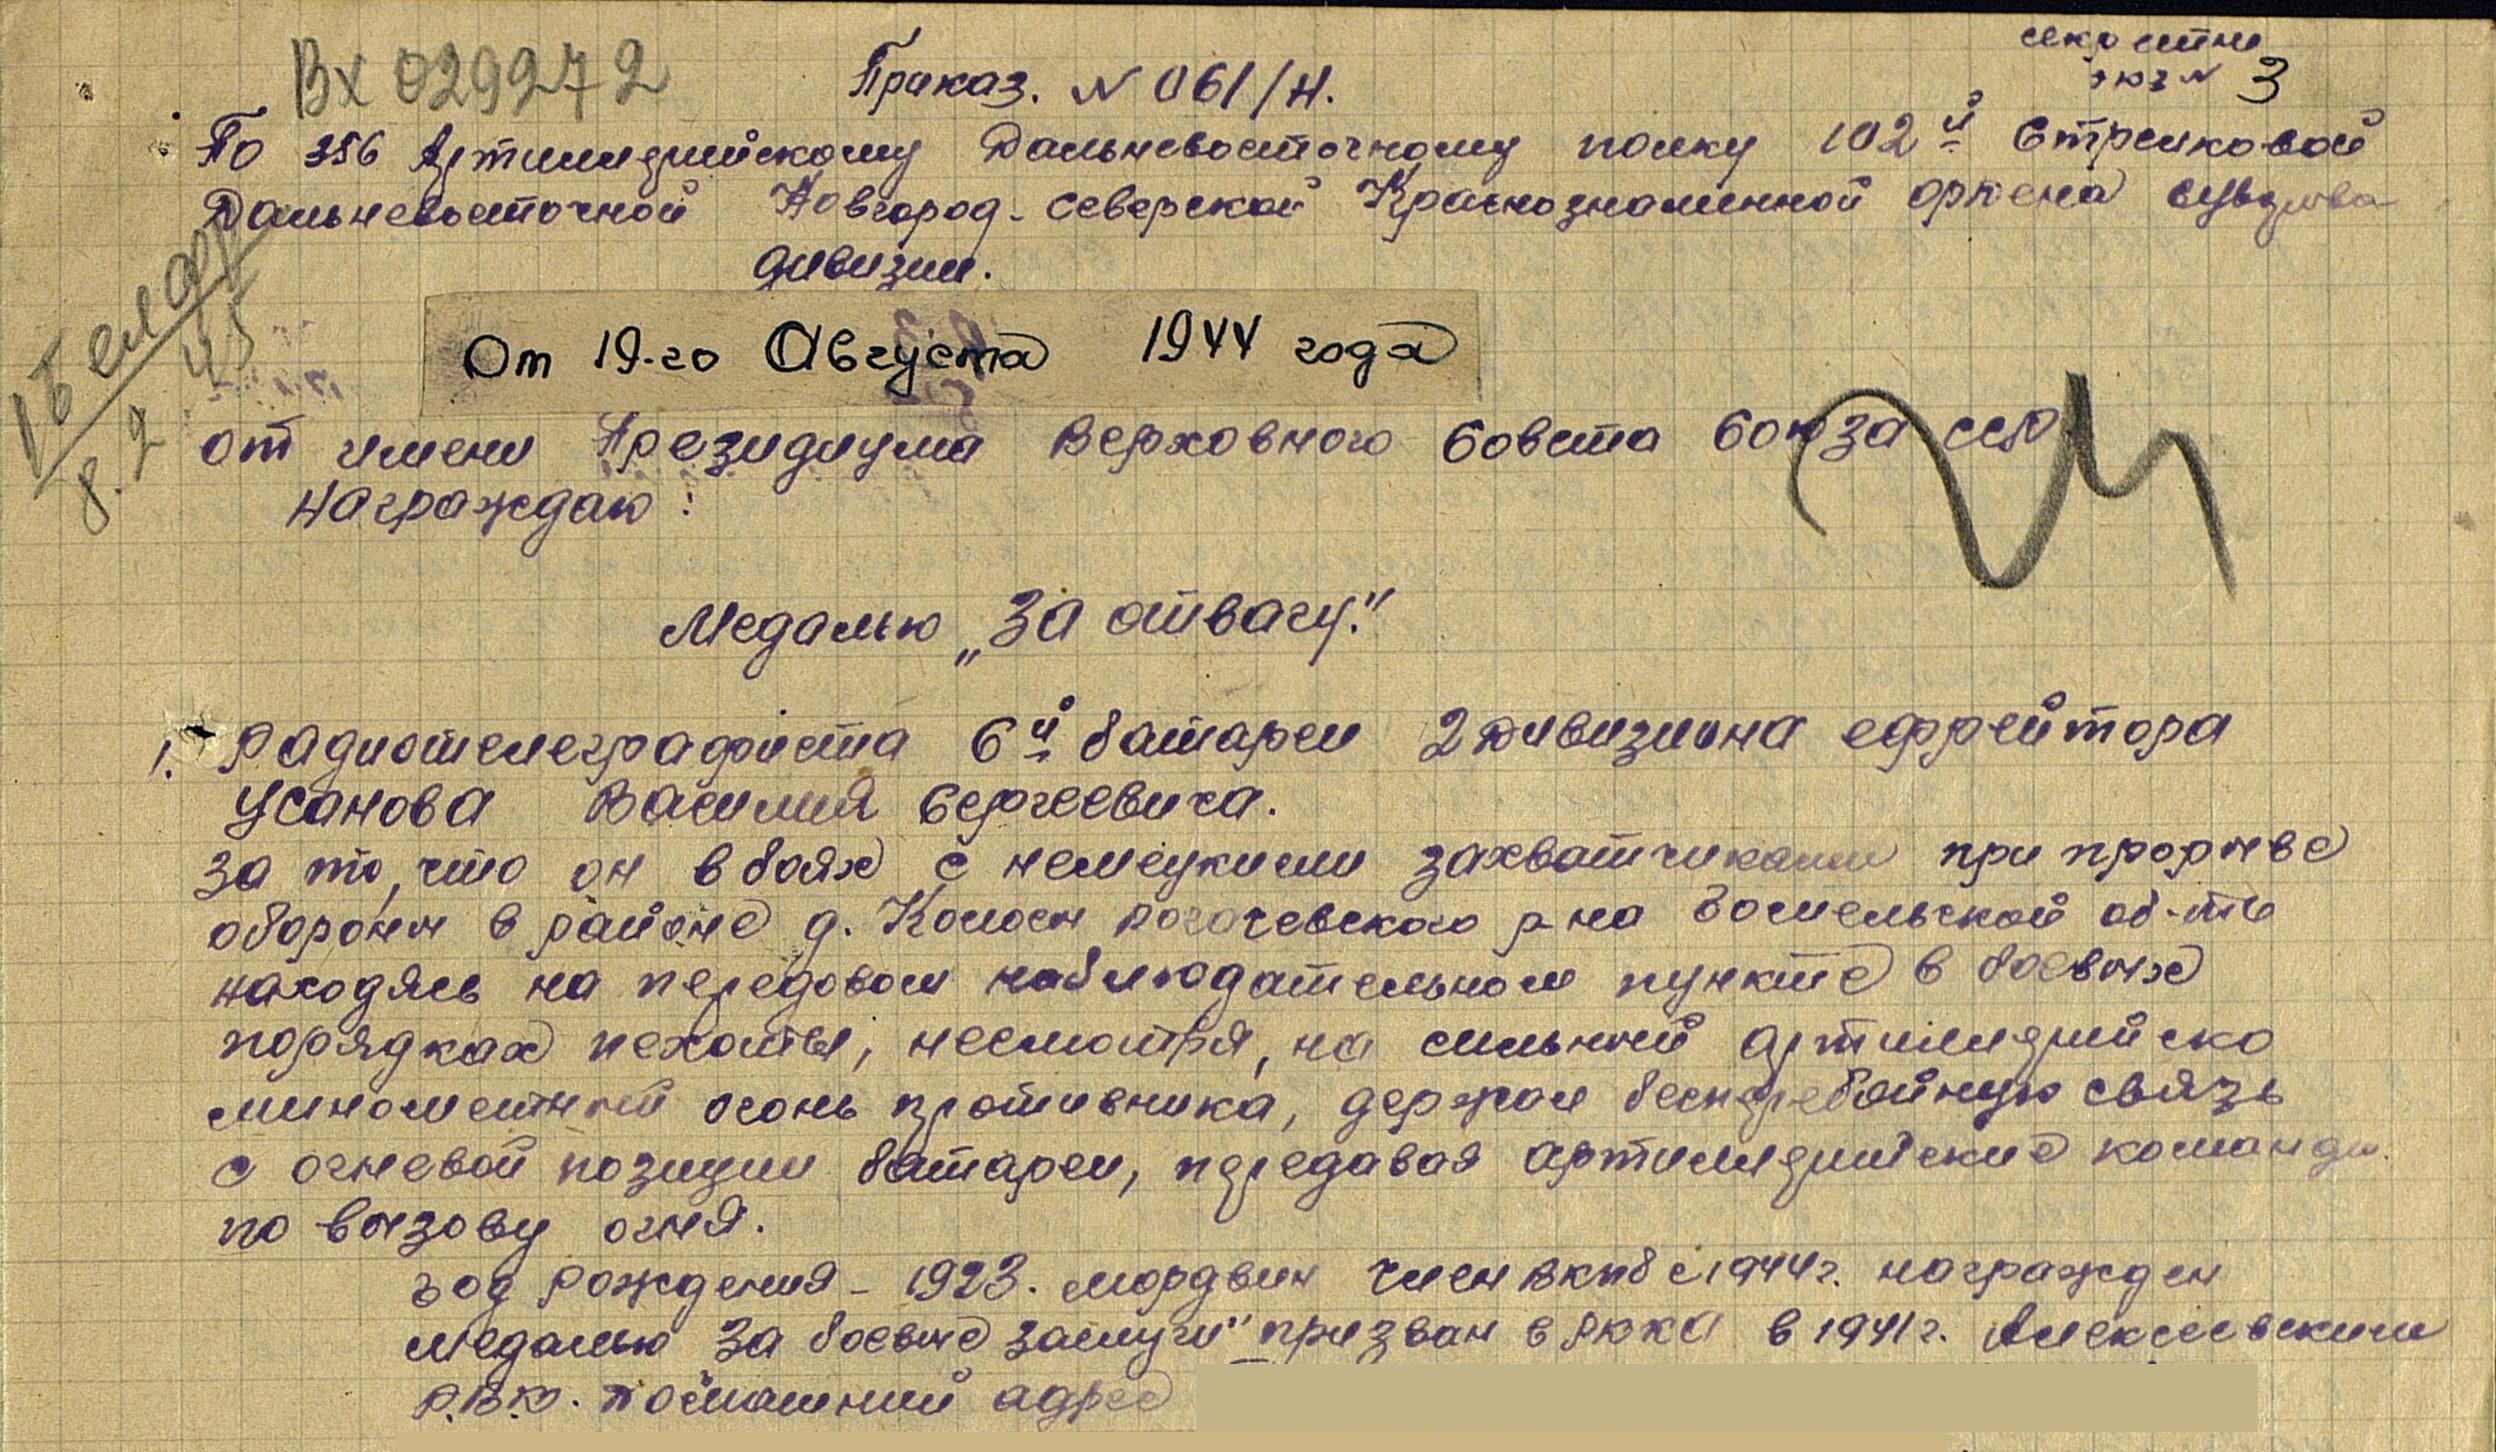 Вх 029272
Приказ. N 061/Н.
секретно
экз N 3
По 356 Артиллерийскому Дальневосточному полку 102й Стрелковой
Дальневосточной Новгород-Северской Краснознаменной ордена Суворова
дивизии.
8.2 45
От 19-го Августа 1944 года
от имени Президиума Верховного Совета Союза ССР
награждаю:
Медалью „За отвагу."
1. Радиотелеграфиста 6й батареи 2 дивизиона ефрейтора
Усанова Василия Сергеевича.
За то, что он в боях с немецкими захватчиками при прорыве
обороны в районе д. Колосы Рогачевского р-на Гомельской об-ти
находясь на передовом наблюдательном пункте в боевых
порядках пехоты, несмотря, на сильный артиллерийско
минометный огонь противника, держал бесперебойную связь
с огневой позиции батареи, передавая артиллерийские команды
по вызову огня.
Год рождения - 1923. мордвин член ВКПб с 1944г. награжден
медалью За боевые заслуги" призван в РККА в 1941г. Алексеевским
Р.В.К. Домашний адрес